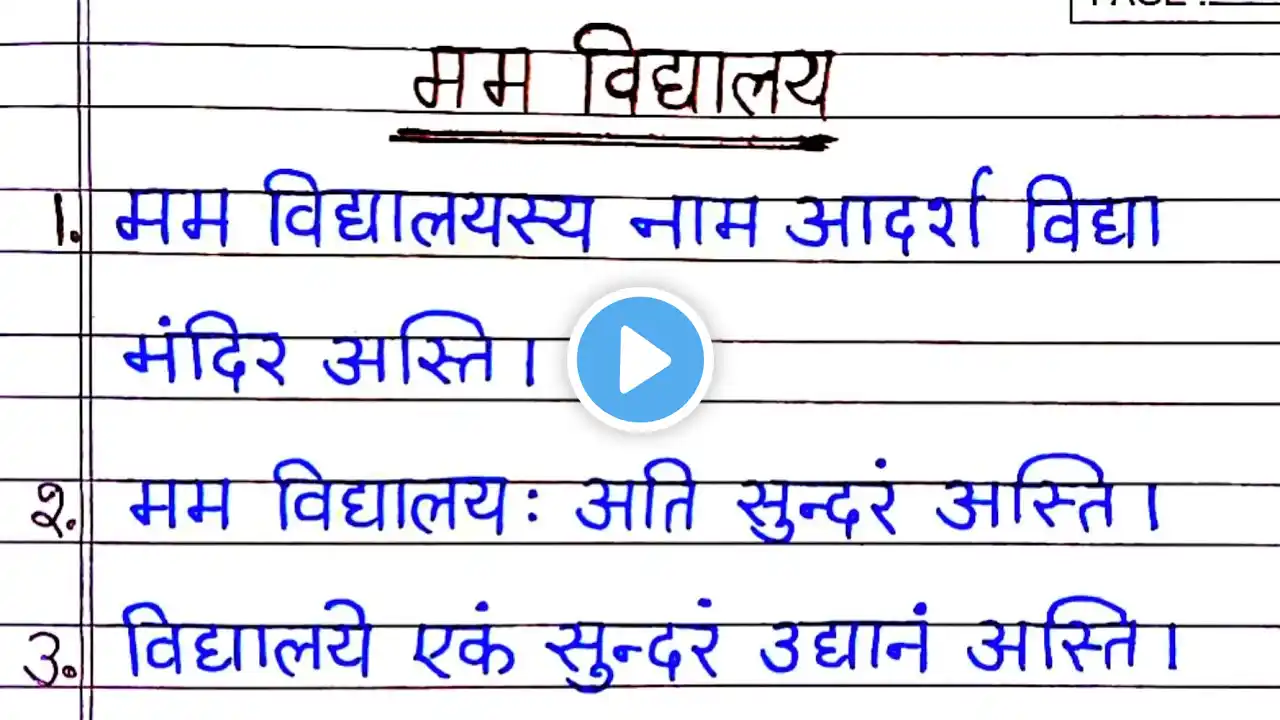 मम विद्यालय
१. मम विद्यालयस्य नाम आदर्श विद्या
मंदिर अस्ति।
२. मम विद्यालयः अति सुन्दरं अस्ति।
३. विद्यालये एकं सुन्दरं उद्यानं अस्ति।